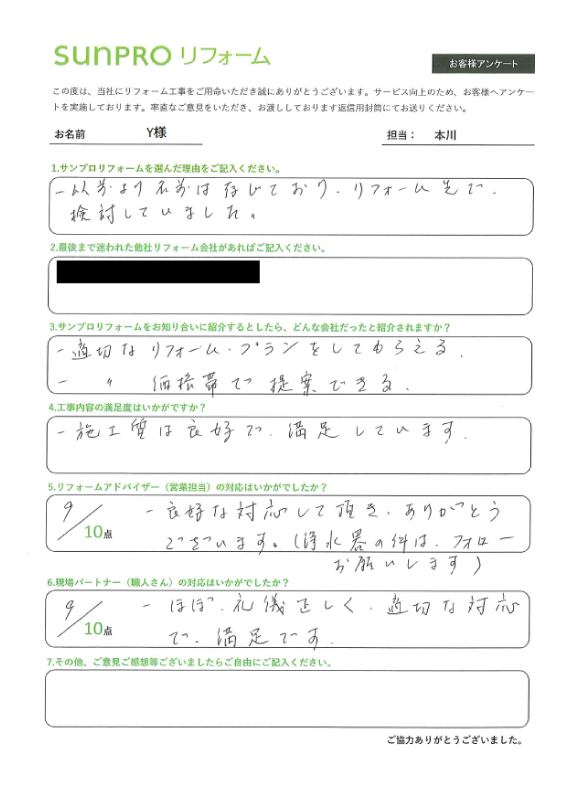 sunPRO リフォーム
お客様アンケート
この度は、当社にリフォーム工事をご用命いただき誠にありがとうございます。サービス向上のため、お客様へアンケー
トを実施しております。率直なご意見をいただき、お渡ししております返信用封筒にてお送りください。
お名前 Y様 担当： 本川
1.サンプロリフォームを選んだ理由をご記入ください。
- 以前より名前は存じており、リフォーム先で、
検討していました。
2.最後まで迷われた他社リフォーム会社があればご記入ください。
3.サンプロリフォームをお知り合いに紹介するとしたら、どんな会社だったと紹介されますか？
- 適切なリフォーム・プランをしてもらえる.
- 〃 価格帯で提案できる.
4.工事内容の満足度はいかがですか？
- 施工質は良好で、満足しています.
5.リフォームアドバイザー（営業担当）の対応はいかがでしたか？
9/10点 - 良好な対応して頂き、ありがとう
ございます。(浄水器の件は、フォロー
お願いします)
6.現場パートナー（職人さん）の対応はいかがでしたか？
9/10点 - ほぼ、礼儀正しく、適切な対応
で、満足です.
7.その他、ご意見ご感想等ございましたらご自由にご記入ください。
ご協力ありがとうございました。